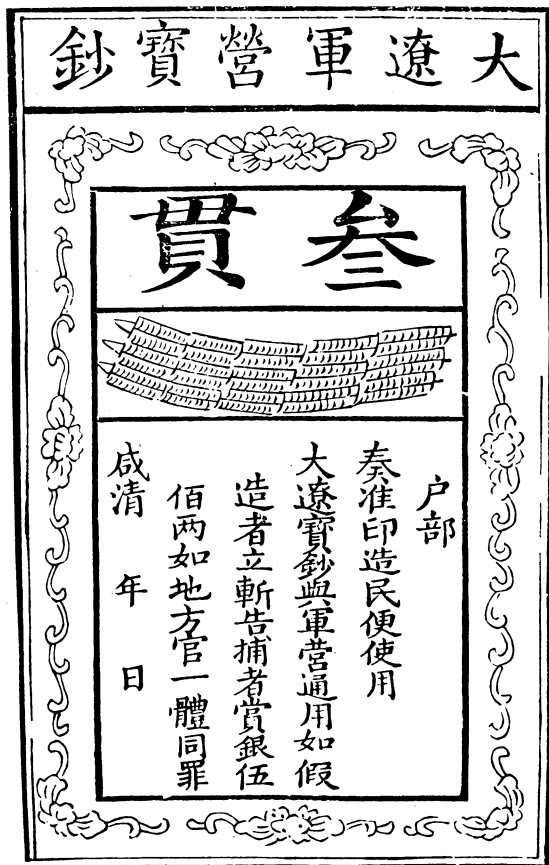 大遼軍營寶鈔
叁貫
户部
奏准印造民便使用
大遼寶鈔與軍营通用如假
造者立斬告捕者賞銀伍
佰两如地方官一體同罪
咸清 年 日